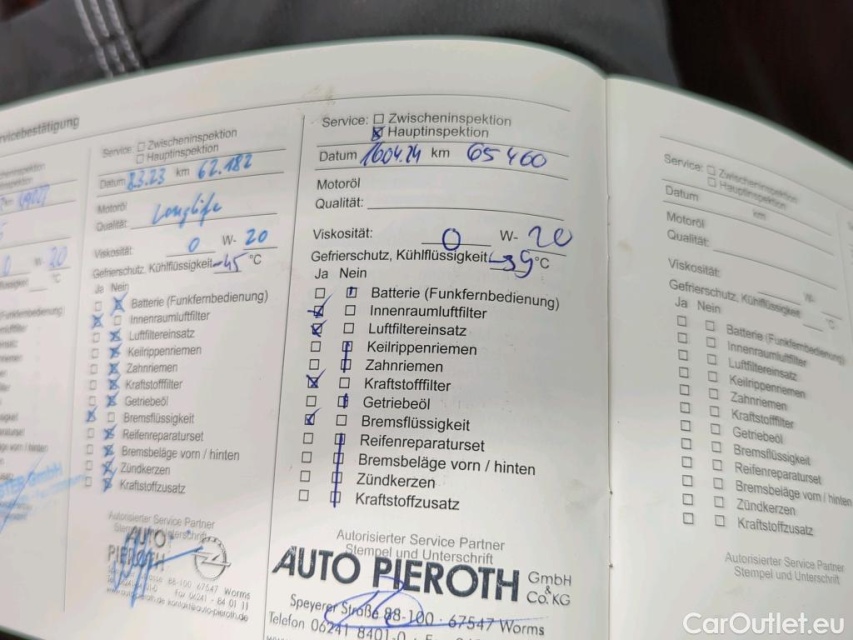 Servicebestätigung
Service: Zwischeninspektion
Hauptinspektion
Datum 8.3.23 km 62.182
Motoröl
Qualität: Longlife
Viskosität: 0 W- 20
Gefrierschutz, Kühlflüssigkeit -45 °C
Ja Nein
Batterie (Funkfernbedienung)
Innenraumluftfilter
Luftfiltereinsatz
Keilrippenriemen
Zahnriemen
Kraftstofffilter
Getriebeöl
Bremsflüssigkeit
Reifenreparaturset
Bremsbeläge vorn / hinten
Zündkerzen
Kraftstoffzusatz
Autorisierter Service Partner
Stempel und Unterschrift
AUTO
PIEROTH
88-100 · 67547 Worms
Service: Zwischeninspektion
Hauptinspektion
Datum 16.04.24 km 65460
Motoröl
Qualität:
Viskosität: 0 W- 20
Gefrierschutz, Kühlflüssigkeit -39 °C
Ja Nein
Batterie (Funkfernbedienung)
Innenraumluftfilter
Luftfiltereinsatz
Keilrippenriemen
Zahnriemen
Kraftstofffilter
Getriebeöl
Bremsflüssigkeit
Reifenreparaturset
Bremsbeläge vorn / hinten
Zündkerzen
Kraftstoffzusatz
Autorisierter Service Partner
Stempel und Unterschrift
AUTO PIEROTH GmbH & Co. KG
Speyerer Straße 88-100 · 67547 Worms
Telefon 06241 8401-0
Service: Zwischeninspektion
Hauptinspektion
Datum km
Motoröl
Qualität:
Viskosität: W-
Gefrierschutz, Kühlflüssigkeit °C
Ja Nein
Batterie (Funkfernbedienung)
Innenraumluftfilter
Luftfiltereinsatz
Keilrippenriemen
Zahnriemen
Kraftstofffilter
Getriebeöl
Bremsflüssigkeit
Reifenreparaturset
Bremsbeläge vorn / hinten
Zündkerzen
Kraftstoffzusatz
Autorisierter Service Partner
Stempel und Unterschrift
CarOutlet.eu